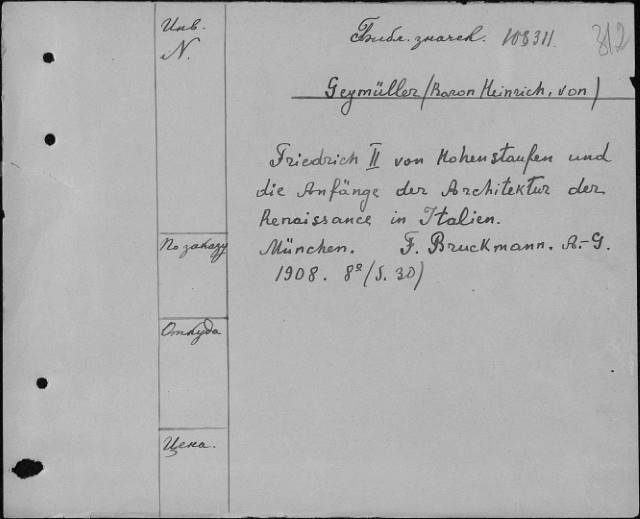 Инв.
N.
Библ. значек. 108311.
312
Geymüller (Baron Heinrich, von)
Friedrich II von Hohenstaufen und
die Anfänge der Architektur der
Renaissance in Italien.
München. F. Bruckmann. A.-G.
1908. 8º (S. 30)
По заказу
Откуда
Цена.